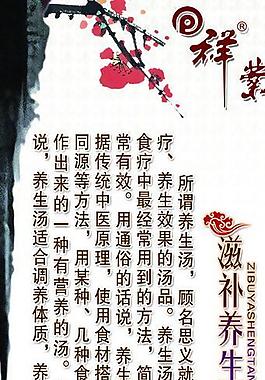 祥®
滋补养生
ZIBUYASHENGTAN
所谓养生汤，顾名思义就
疗、养生效果的汤品。养生汤
食疗中最经常用到的方法，简
常有效。用通俗的话说，养生
据传统中医原理，使用食材搭
同源等方法，用某种、几种食
作出来的一种有营养的汤。
说，养生汤适合调养体质，养